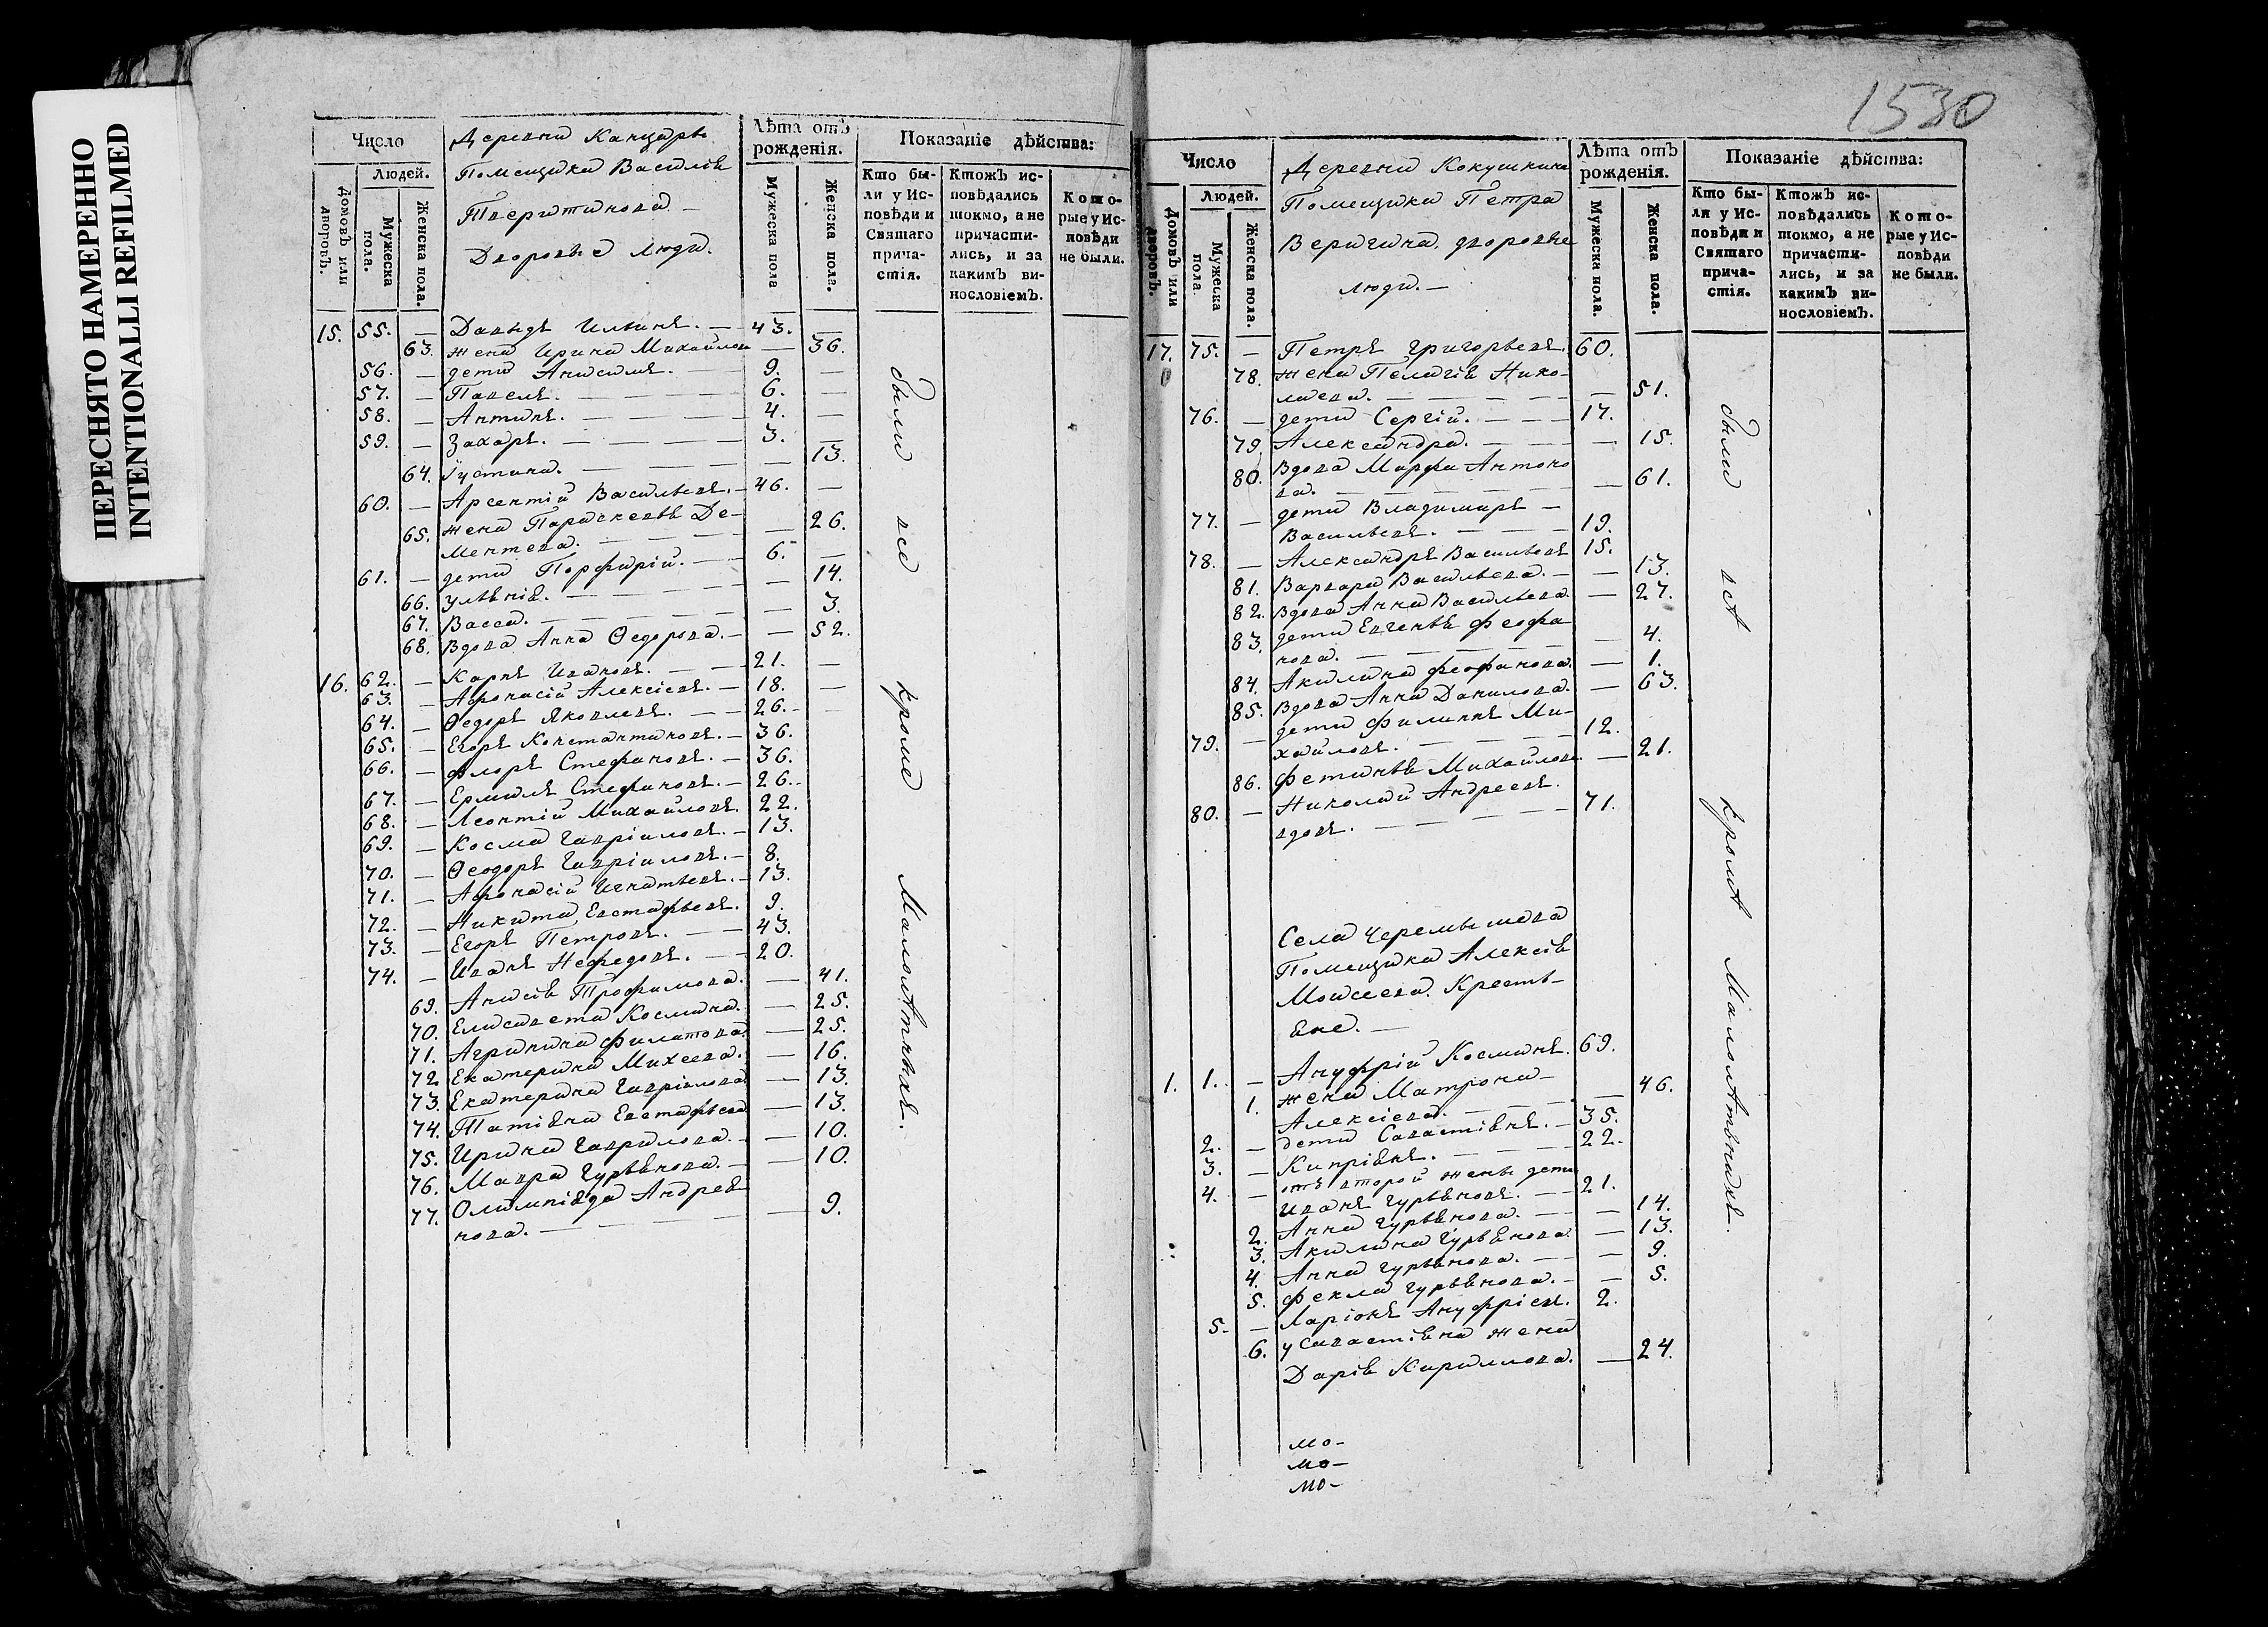 ПЕРЕСНЯТО НАМЕРЕННО
INTENTIONALLI REFILMED
1530
Число
Людей.
Домовъ или дворовъ.
Мужеска пола.
Женска пола.
Деревни Канцарь
Помещика Василія
Тверитинова.
Дворовые люди.
Лѣта отъ рожденія.
Мужеска пола
Женска пола.
Показаніе дѣйства:
Кто были у Исповѣди и Святаго причастія.
Ктожъ исповѣдались токмо, а не причастились, и за какимъ винословіемъ.
Которые у Исповѣди не были.
15. 55. — Давыдъ Ильинъ. — 43. —
63. жена Ирина Михайлова — 36.
56. — дети Анисимъ. — 9. —
57. — Павелъ. — 6. —
58. — Антипъ. — 4. —
59. — Захаръ. — 3. —
64. Іустина. — 13.
60. — Арсентій Васильевъ. — 46. —
65. жена Параскевья Де-
ментева. — 26.
61. — дети Порфирій. — 6. —
66. Ульянія. — 14.
67. Васса. — 3.
68. Вдова Анна Ѳедорова. — 52.
16. 62. — Карпъ Ивановъ. — 21. —
63. — Афонасій Алексіевъ. — 18. —
64. — Ѳедоръ Яковлевъ. — 26. —
65. — Егоръ Константиновъ. — 36.
66. — Флоръ Стефановъ. — 36.
67. — Ермилъ Стефановъ. — 26.
68. — Леонтій Михайловъ. 22.
69. — Косма Гавріиловъ. — 13.
70. — Ѳеодоръ Гавріиловъ. — 8.
71. — Афонасій Игнатьевъ. — 13.
72. — Никита Евстафьевъ. 9.
73. — Егоръ Петровъ. — 43.
74. — Иванъ Нефедовъ. — 20.
69. Анисія Трофимова. — 41.
70. Елисавета Космина. — 25.
71. Агрипина Филатова. — 25.
72 Екатерина Михеева. — 16.
73. Екатерина Гавріилова — 13.
74. Татіяна Евстафьева — 13.
75. Ирина Гаврилова. — 10.
76. Мавра Гурьянова. — 10.
77. Олимпіяда Андрея-
нова. — 9.
были все кроме малолѣтныхъ.
Число
Людей.
Домовъ или дворовъ.
Мужеска пола.
Женска пола.
Деревни Кокушкина
Помещика Петра
Веригина. дворовые
люди. —
Лѣта отъ рожденія.
Мужеска пола.
Женска пола.
Показаніе дѣйства:
Кто были у Исповѣди и Святаго причастія.
Ктожъ исповѣдались токмо, а не причастились, и за какимъ винословіемъ.
Которые у Исповѣди не были.
17. 75. — Петръ Григорьевъ. 60.
78. жена Пелагія Нико-
лаева. — 51.
76. — дети Сергій. — 17.
79. Александра. — 15.
80. Вдова Марфа Антоно
ва. — 61.
77. — дети Владимиръ —
Васильевъ. — 19.
78. — Александръ Васильевъ 15.
81. Варвара Васильева. — 13.
82. Вдова Анна Васильева. — 27.
83. дети Евгенья Феофа-
нова. — 4.
84. Акилина Феофанова. — 1.
85. Вдова Анна Данилова. — 63.
79. — дети Филиппъ Ми-
хайловъ. — 12.
86. Фетинья Михайлова — 21.
80. — Николай Андреевъ.
вдовъ. — 71.
Села Черемышева
Помещика Алексія
Моисеева. Кресть-
яне. —
1. 1. — Ануфрій Косминъ. 69.
1. жена Матрона —
Алексіева. — 46.
2. — дети Савастіянъ. — 35.
3. — Кипріянъ. — 22.
4. — отъ второй жены дети
Иванъ Гурьяновъ. — 21.
2. Анна Гурьянова. — 14.
3. Акилина Гурьянова — 13.
4. Анна Гурьянова. — 9.
5. Фекла Гурьянова. — 5.
5. — Ларіонъ Ануфріевъ. 2.
6. у Савастіяна жена
Дарія Кирилова. — 24.
мо-
мо-
мо-
были всѣ кромѣ малолѣтныхъ.